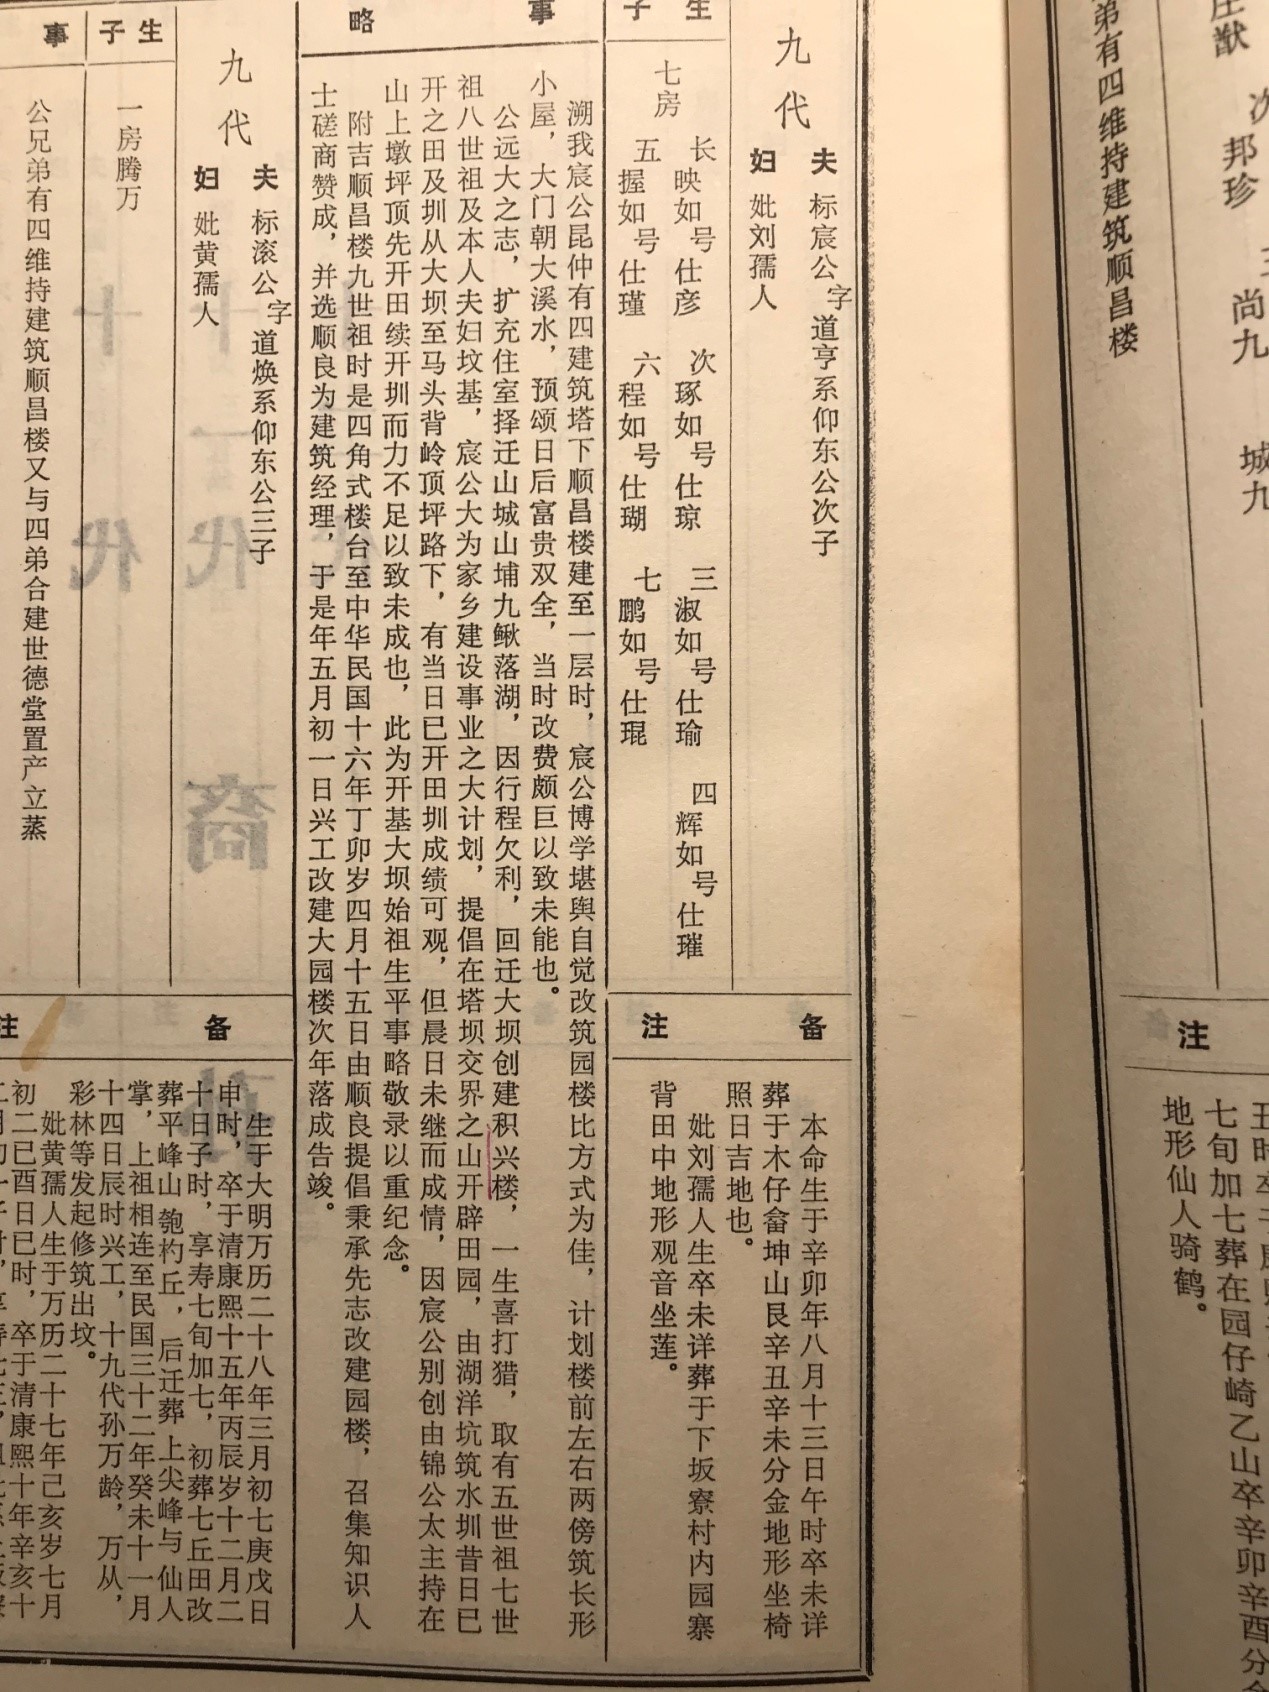 弟有四维持建筑顺昌楼
次邦珍
尚九
城九
注
七旬加七葬在园仔崎乙山卒辛卯辛酉分金
地形仙人骑鹤。
九代
夫 标宸公字道亨系仰东公次子
妇 妣刘孺人
生子
七房
长映如号仕彦 次琢如号仕琼 三淑如号仕瑜 四辉如号仕璀
五握如号仕瑾 六程如号仕瑚 七鹏如号仕琨
事略
溯我宸公昆仲有四建筑塔下顺昌楼建至一层时，宸公博学堪舆自觉改筑园楼比方式为佳，计划楼前左右两傍筑长形
小屋，大门朝大溪水，预颂日后富贵双全，当时改费颇巨以致未能也。
公远大之志，扩充住室择迁山城山埔九鳅落湖，因行程欠利，回迁大坝创建积兴楼，一生喜打猎，取有五世祖七世
祖八世祖及本人夫妇坟基，宸公大为家乡建设事业之大计划，提倡在塔坝交界之山开辟田园，由湖洋坑筑水圳昔日已
开之田及圳从大坝至马头背岭顶坪路下，有当日已开田圳成绩可观，但晨日未继而成情，因宸公别创由锦公太主持在
山上墩坪顶先开田续开圳而力不足以致未成也，此为开基大坝始祖生平事略敬录以重纪念。
附吉顺昌楼九世祖时是四角式楼台至中华民国十六年丁卯岁四月十五日由顺良提倡秉承先志改建园楼，召集知识人
士磋商赞成，并选顺良为建筑经理，于是年五月初一日兴工改建大园楼次年落成告竣。
备注
本命生于辛卯年八月十三日午时卒未详
葬于木仔畲坤山艮辛丑辛未分金地形坐椅
照日吉地也。
妣刘孺人生卒未详葬于下坂寮村内园寨
背田中地形观音坐莲。
九代
夫 标滚公字道焕系仰东公三子
妇 妣黄孺人
生子
一房腾万
事
公兄弟有四维持建筑顺昌楼又与四弟合建世德堂置产立蒸
备注
生于大明万历二十八年三月初七庚戊日
申时，卒于清康熙十五年丙辰岁十二月二
十日子时，享寿七旬加七，初葬七丘田改
葬平峰山匏杓丘，后迁葬上尖峰与仙人
掌，上祖相连至民国三十二年癸未十一月
十四日辰时兴工，十九代孙万龄，万从，
彩林等发起修筑出坟。
妣黄孺人生于万历二十七年己亥岁七月
初二已酉日巳时，卒于清康熙十年辛亥十